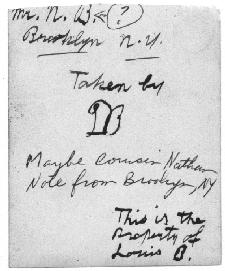 Mr. N. B (?)
Brooklyn N.Y.
Taken by
B
Maybe cousin Nathan
Note from Brooklyn, NY
This is the
Property of
Louis B.